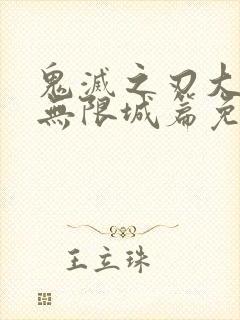 鬼滅之刃大
無限城篇免
王立珠